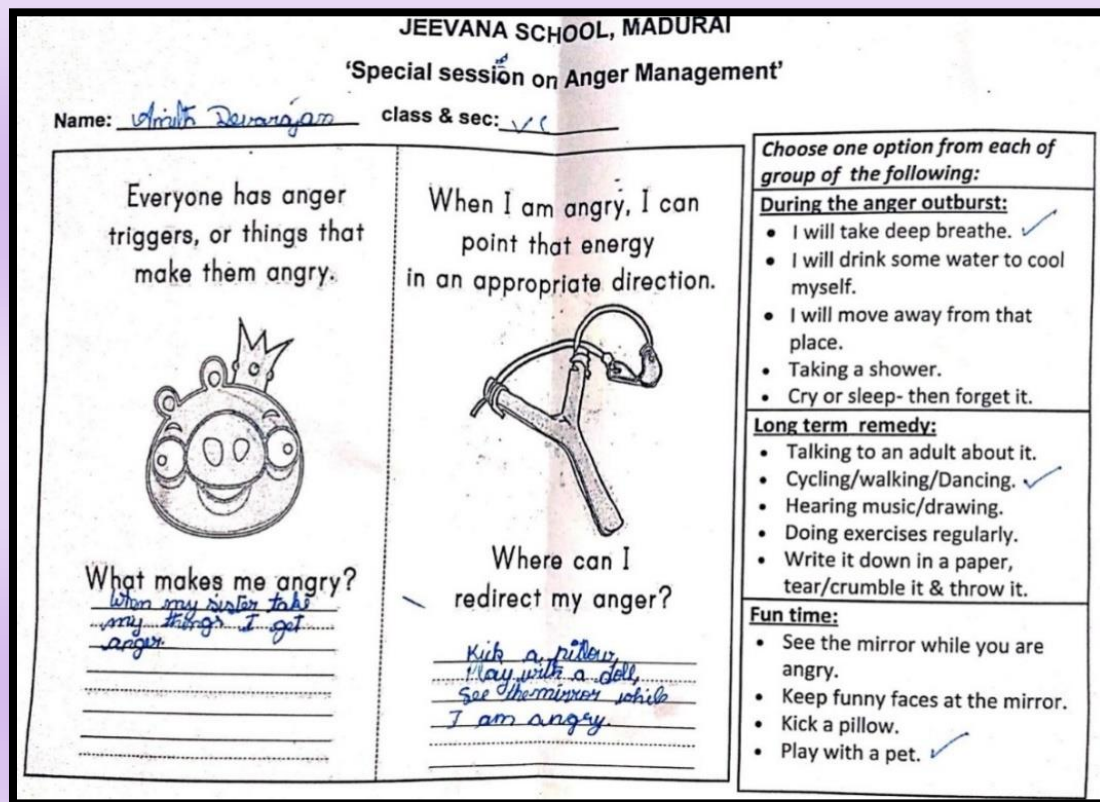 JEEVANA SCHOOL, MADURAI
'Special session on Anger Management'
Name: Devarajan class & sec: V C
Everyone has anger
triggers, or things that
make them angry.
What makes me angry?
When my sister take
my things I get
anger.
When I am angry, I can
point that energy
in an appropriate direction.
Where can I
redirect my anger?
Kick a pillow,
Play with a doll,
See the mirror while
I am angry.
Choose one option from each of
group of the following:
During the anger outburst:
• I will take deep breathe. ✓
• I will drink some water to cool
myself.
• I will move away from that
place.
• Taking a shower.
• Cry or sleep- then forget it.
Long term remedy:
• Talking to an adult about it.
• Cycling/walking/Dancing. ✓
• Hearing music/drawing.
• Doing exercises regularly.
• Write it down in a paper,
tear/crumble it & throw it.
Fun time:
• See the mirror while you are
angry.
• Keep funny faces at the mirror.
• Kick a pillow.
• Play with a pet. ✓